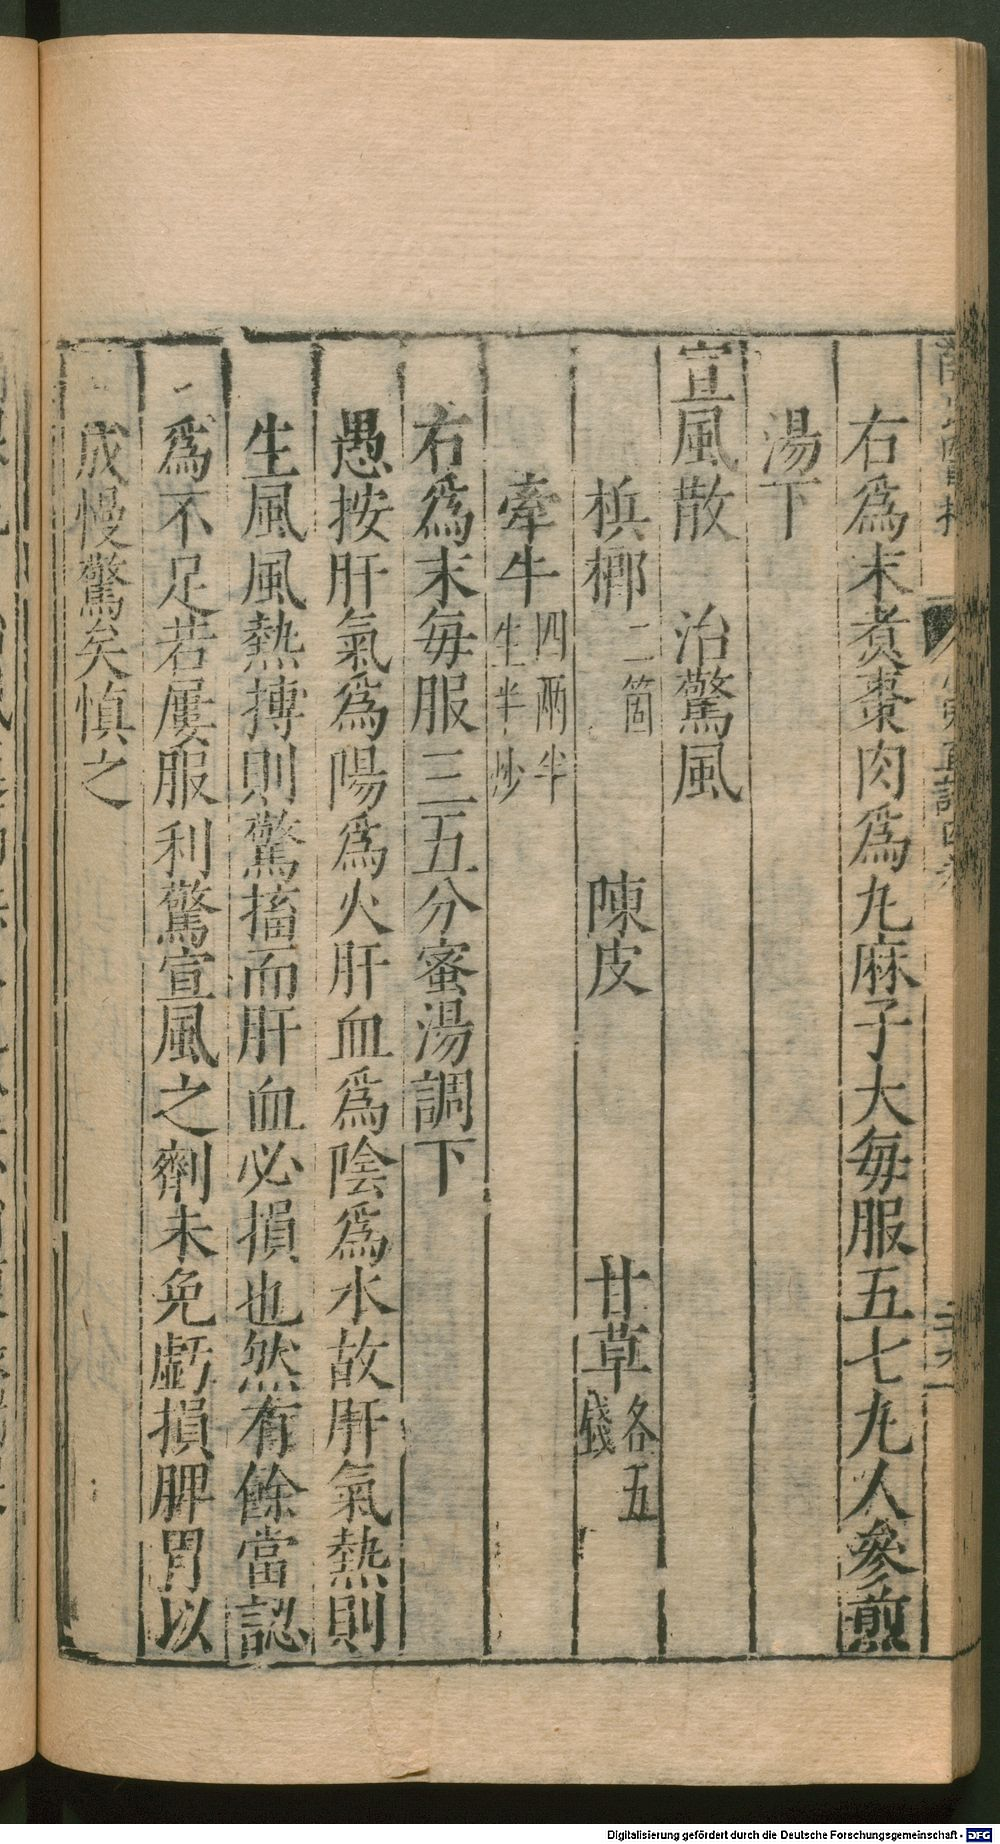 右爲末煮棗肉爲丸麻子大每服五七九人參煎
湯下
宣風散　治驚風
檳榔二箇　陳皮　甘草各五錢
牽牛四兩半生半炒
右爲末每服三五分蜜湯調下
愚按肝氣爲陽爲火肝血爲陰爲水故肝氣熱則
生風風熱摶則驚搐而肝血必損也然有餘當認
爲不足若屢服利驚宣風之劑未免虧損脾胃以
成慢驚矣慎之
Digitalisierung gefördert durch die Deutsche Forschungsgemeinschaft - DFG